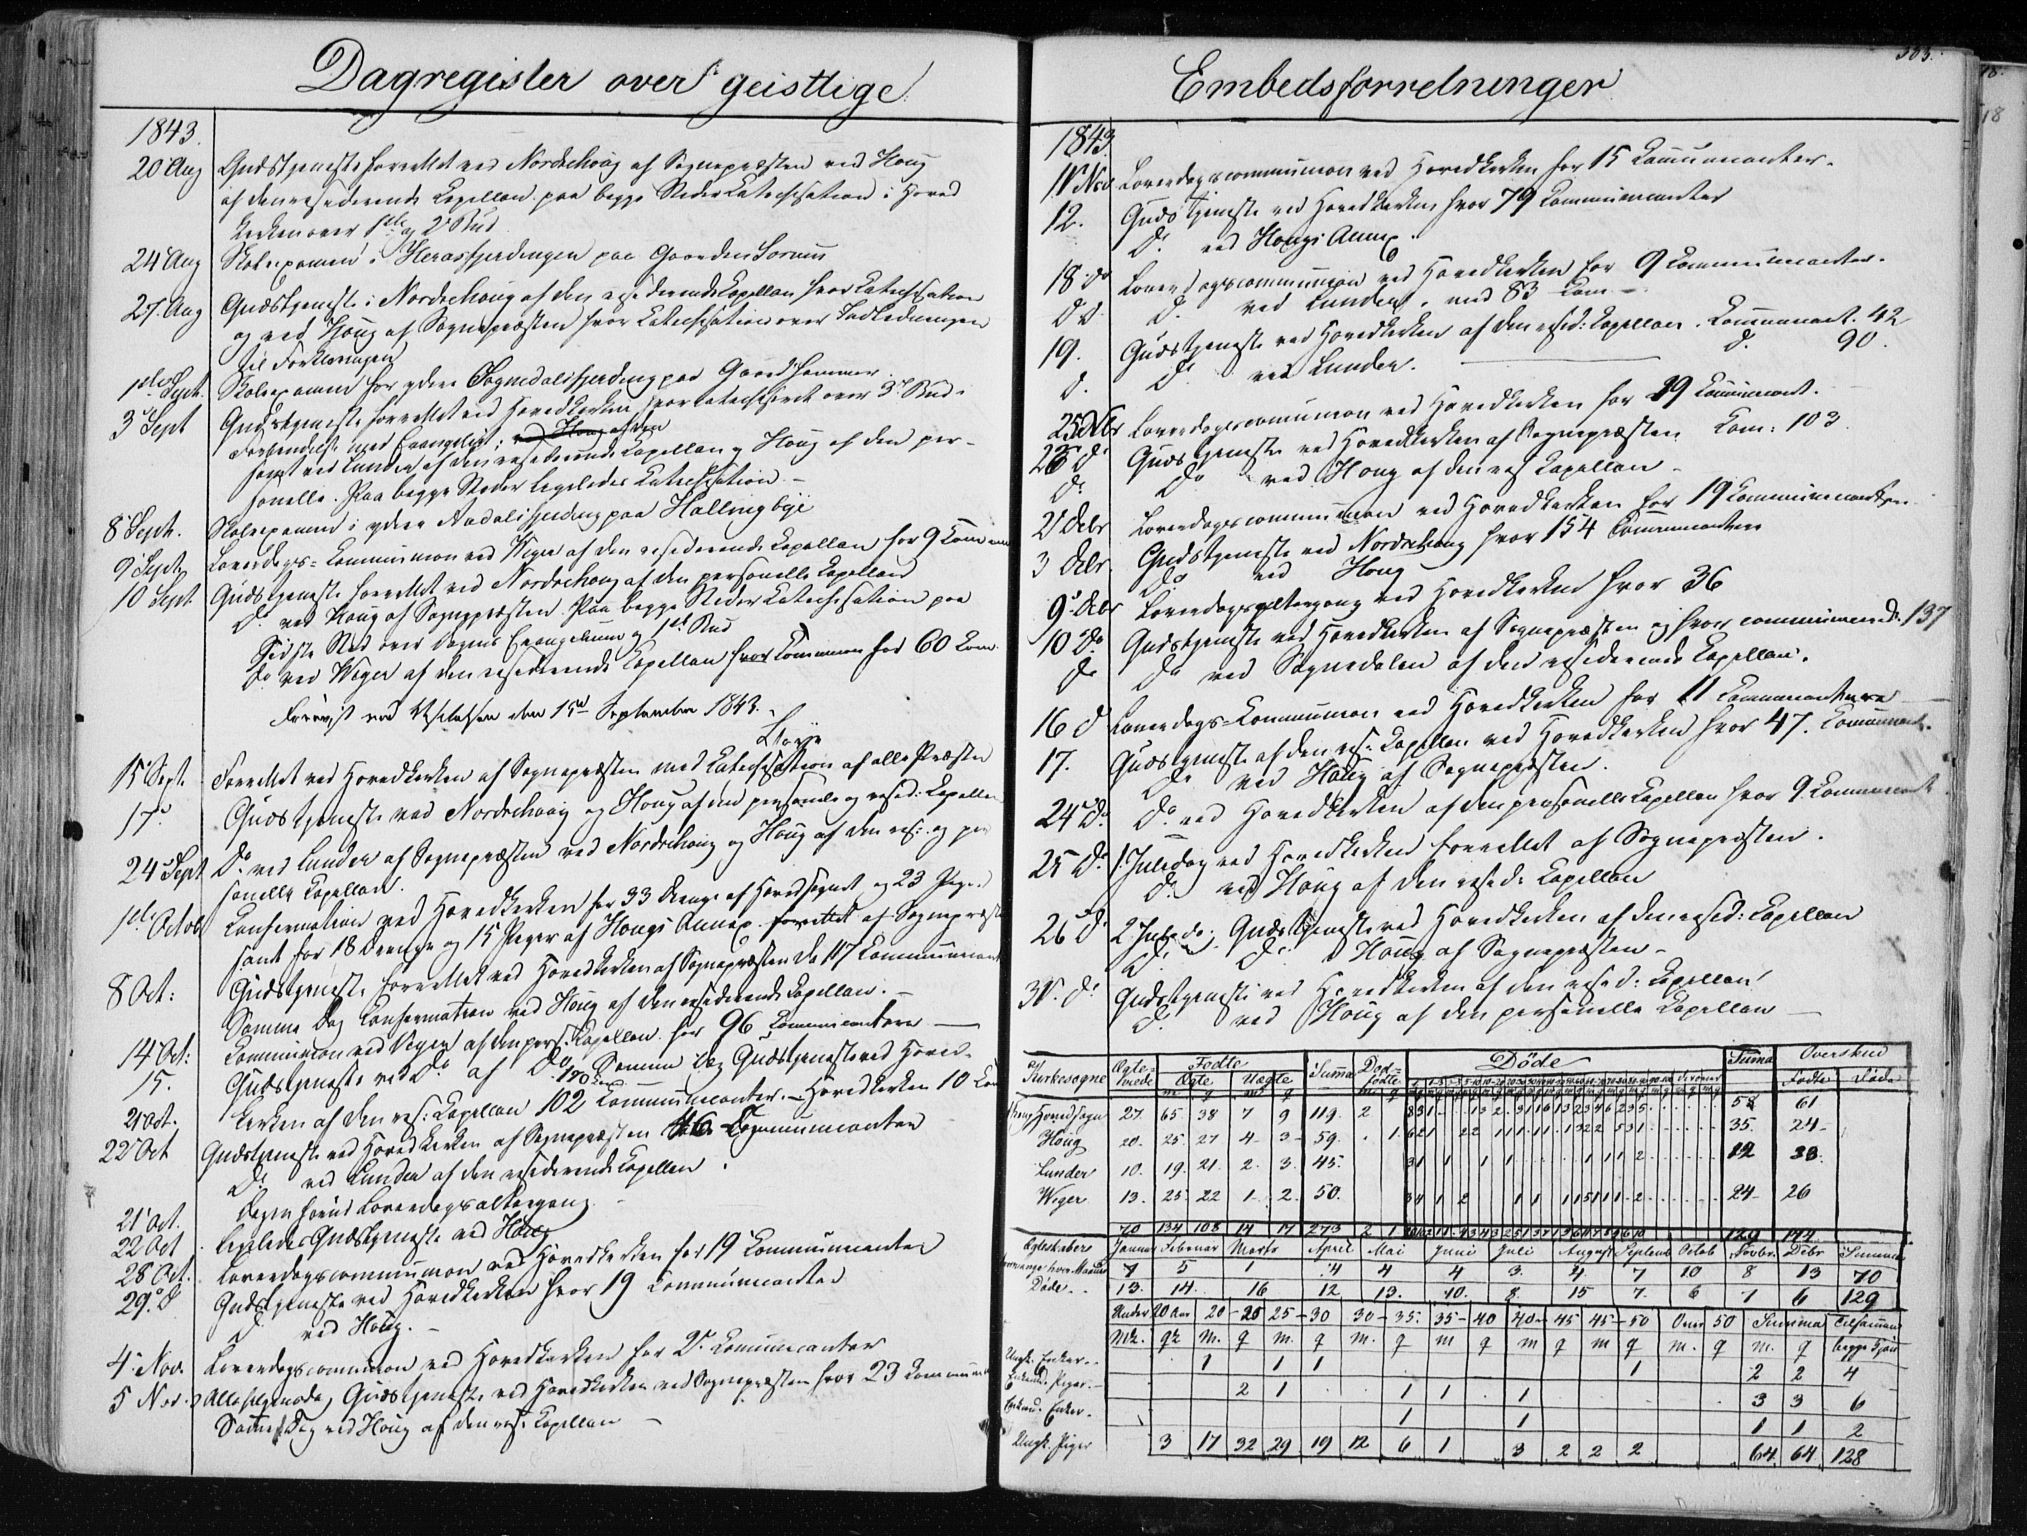 Dagregister over geistlige
1843.
20 Aug Gudstjeneste forrettet ved Norderhoug af Sognepræsten ved Houg
af den residerende Capellan paa begge Steder Katechisation i Hoved
kirken over 1ste og 2d Bud
24 Aug Skoleexamen i Heradsfjerdingen paa Gaarden
27 Aug Gudstjeneste i Norderhoug af den residerende Capellan hvor Katechisation
og ved Houg af Sognepræsten hvor Katechisation over Indledningen
til Forklaringen
1ste Sept. Skoleexamen for ydre Sognedalsfjerding paa Gaard
3 Sept Gudstjeneste forrettet ved Hovedkirken, hvor katechiseret over 3d Bud i
Forbindelse med Evangeliet; ved Houg af den
samt ved Lunder af den residerende Capellan og Houg af den per-
sonelle. Paa begge Steder ligeledes Katechisation. –
8 Septr. Skoleexamen i ydre Aadalsfjerding paa Hallingbye
9 Septr Løverdags-Communion ved Viger af den residerende Capellan for 9 Commun
10 Sept Gudstjeneste forrettet ved Norderhoug af den personelle Capellan
Do ved Houg af Sognepræsten. Paa begge Steder Katechisation paa
Sidste Sted over Dagens Evangelium og 1ste Bud
Do ved Viger af den residerende Capellan hvor Communion for 60 Com.
Foreviist ved Visitatsen den 15de September 1843. –
15 Sept. Forrettet ved Hovedkirken af Sognepræsten med Katechisation af alle Præster
17. Gudstjeneste ved Norderhoug og Houg af den personelle og resid: Capellan
24 Sept Do ved Lunder af Sognepræsten ved Norderhoug og Houg af den res: og per
sonelle Capellan.
1ste Octob Confirmation ved Hovedkirken for 33 Drenge af Hovedsognet og 23 Piger
samt for 18 Drenge og 15 Piger af Hougs Annex forrettet af Sognepræst
8 Oct: Gudstjeneste forrettet ved Hovedkirken af Sognepræsten Do 117 Communicant
Samme Dag Confirmation ved Houg af den residerende Capellan. –
14 Oct: Communion ved Viger af den pers: Capellan for 96 Communicantere
15. Gudstjeneste ved Do af Do Samme Dag Gudstjeneste ved Hoved-
21 Oct. kirken af den res: Capellan 102 Communicanter. – Hovedkirken 10 Com
22 Oct Gudstjeneste ved Hovedkirken af Sognepræsten 46 Communicanter
Do ved Lunder af den residerende Capellan
Dagen forud Løverdagsaltergang.
21 Oct.
22 Oct ligeledes Gudstjeneste ved Houg
28 Oct. Løverdagscommunion ved Hovedkirken for 19 Communicanter
29. D Gudstjeneste ved Hovedkirken hvor 19 Communicanter
d. ved Houg. –
4 Nov. Løverdagscommunion ved Hovedkirken for Communicanter
5 Nov. Allehelgensdag Gudstjeneste ved Hovedkirken ved Sognepræsten hvor 23 Commun
Samme Dag ved Houg af den res: Capellan –
Embedsforretninger
1843
11 Nov Løverdagscommunion ved Hovedkirken for 15 Communicanter.
12. Gudstjeneste ved Hovedkirken hvor 79 Communicanter
Do ved Hougs Annex.
18 do Løverdagscommunion ved Hovedkirken for 9 Communicanter.
Do. D. ved Lunder, med 83 Com –
19. Gudstjeneste ved Hovedkirken af den resid: Capellan. Communicant. 42
d. D. ved Lunder. d. 90.
25 Løverdagscommunion ved Hovedkirken for 29 Communicant.
26 d. Gudstjeneste ved Hovedkirken af Sognepræsten Com: 103
Do Do ved Houg af den res Capellan –
2 Decbr Løverdagscommunion ved Hovedkirken for 19 Communicanter
3 Decbr Gudstjeneste ved Norderhoug hvor 154 Communicantere
Do ved Houg
9 Decbr Løverdagsaltergang ved Hovedkirken hvor 36
10 Do. Gudstjeneste ved Hovedkirken af Sognepræsten og hvor communicerede 137
do Do ved Sognedalen af den residerende Capellan.
16 D Løverdags-Communion ved Hovedkirken for 11 Communicantere
17. Gudstjeneste af den res: Capellan ved Hovedkirken hvor 47. Communicant.
Do ved Houg af Sognepræsten.
24 D. Do. ved Hovedkirken af den personelle Capellan hvor 9. Communicant.
25 D. 1. Juledag ved Hovedkirken forrettet af Sognepræsten.
d. ved Houg af den resid. Capellan
26 D. 2 Jule do: Gudstjeneste ved Hovedkirken af den resid: Capellan
D. d. Houg af Sognepræsten –
31. D. Gudstjeneste ved Hovedkirken af den resid: Capellan
D. ved Houg af den personelle Capellan –
Kirkesogne Ægteviede Fødte Summa Død-fødte Døde Summa Overskud
Ægte Uægte Fødte Døde
Hovedsogn 27 65 38 7 9 119. 2 58 61
Houg 20. 25 27 4 3 59. 1 35. 24
Lunder 10. 19 21. 2. 3 45.
Viger 13. 25 22 1 2. 50. 24 26
70 134 108 14 17 273 2 1 129 144
Ægteskabers Januar Februar Marts April Mai Juni Juli August Septemb Octob Novbr. Decbr Summa
7 5 1 4 4 4 3. 4. 7 10 8 13 70
Døde 13. 14. 16 12 13. 10. 8. 15 7. 6 7 6 129
Under 20 Aar 20-25 25-30 30-35. 35-40 40-45 45-50 Over 50 Summa Tilsammen
Mk. qk m. q m. q m. q m q m q m q m. q m. q begge Kjøn
Ungk. Enker 1 1 1 1 2 2 4
Enkem. Piger 2 1 1 1 1 3 3 6
Enkem. Enker. 1 1 1 1 2
Ungk. Piger 3 17 32 29 19 12 6 1 3 2 2 2 64 64 128